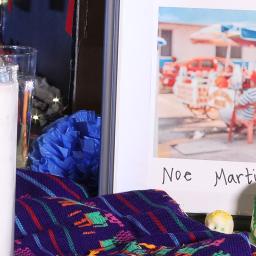 Noe Marti